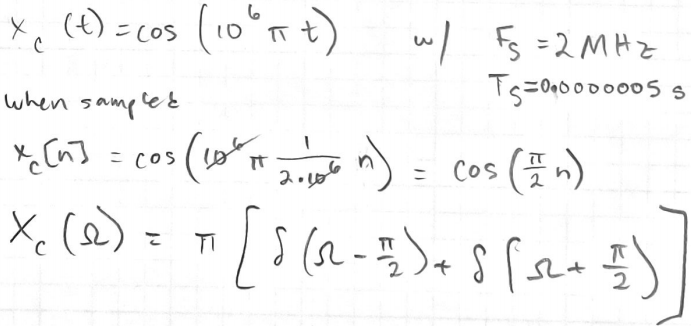 x_c (t) = cos (10^6 π t) w/ F_s = 2 MHz
T_s = 0.0000005 s
when sampled
x_c[n] = cos (10^6 π 1/(2·10^6) n) = cos (π/2 n)
X_c (Ω) = π [ δ (Ω - π/2) + δ (Ω + π/2) ]